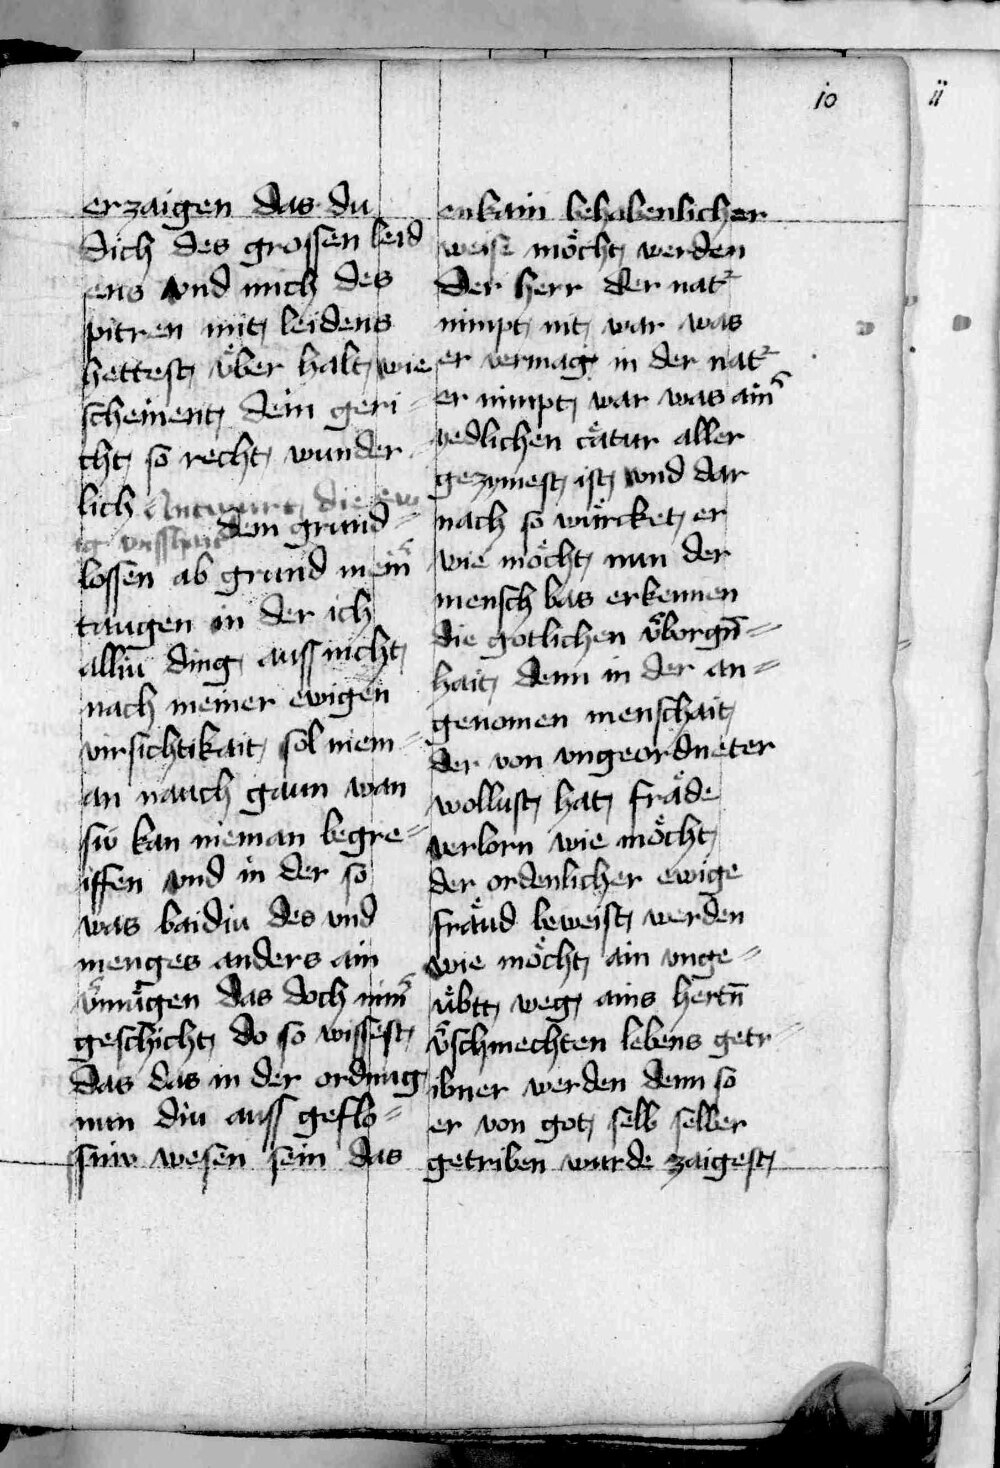 io
ii
erzaigen das du
dich des grossen leid
ens vnd mich des
pitren mit leidens
hettest vͤber halt wie
scheinent dein geri-
cht so recht wunder
lich Antwurt die ew
ig wisshait dem grund=
lossen ab grund mein̄
taugen in der ich
alliu ding auss nicht
nach meiner ewigen
virsichtikait sol niem=
an nauch gaun wan
siv kan nieman begre=
iffen vnd in der so
was baidiu des vnd
menges anders ain
v̄mägen das doch nim̄
geschicht do so wissest
das das in der ordnug
nun diu auss geflo=
ssniv wesen sein das
enkain behabenlicher
weise möcht werden
Der herr der nat᷑
nimpt nit war was
er vermag in der nat᷑
er nimpt war was ain̄
yedlichen cͤatur aller
gezymest ist vnd dar
nach so würcket er
wie möcht nun der
mensch bas erkennen
die gotlichen v̄borgn̄=
hait denn in der an=
genomen menschait
der von vngeordneter
wollust hat fräde
verlorn wie möcht
der ordenlicher ewige
fräud beweist werden
wie möcht ain vnge=
übtt weg ains hertn̄
v̄schmechten lebens getr=
ibner werden denn so
er von got selb selber
getriben wurde zaigest